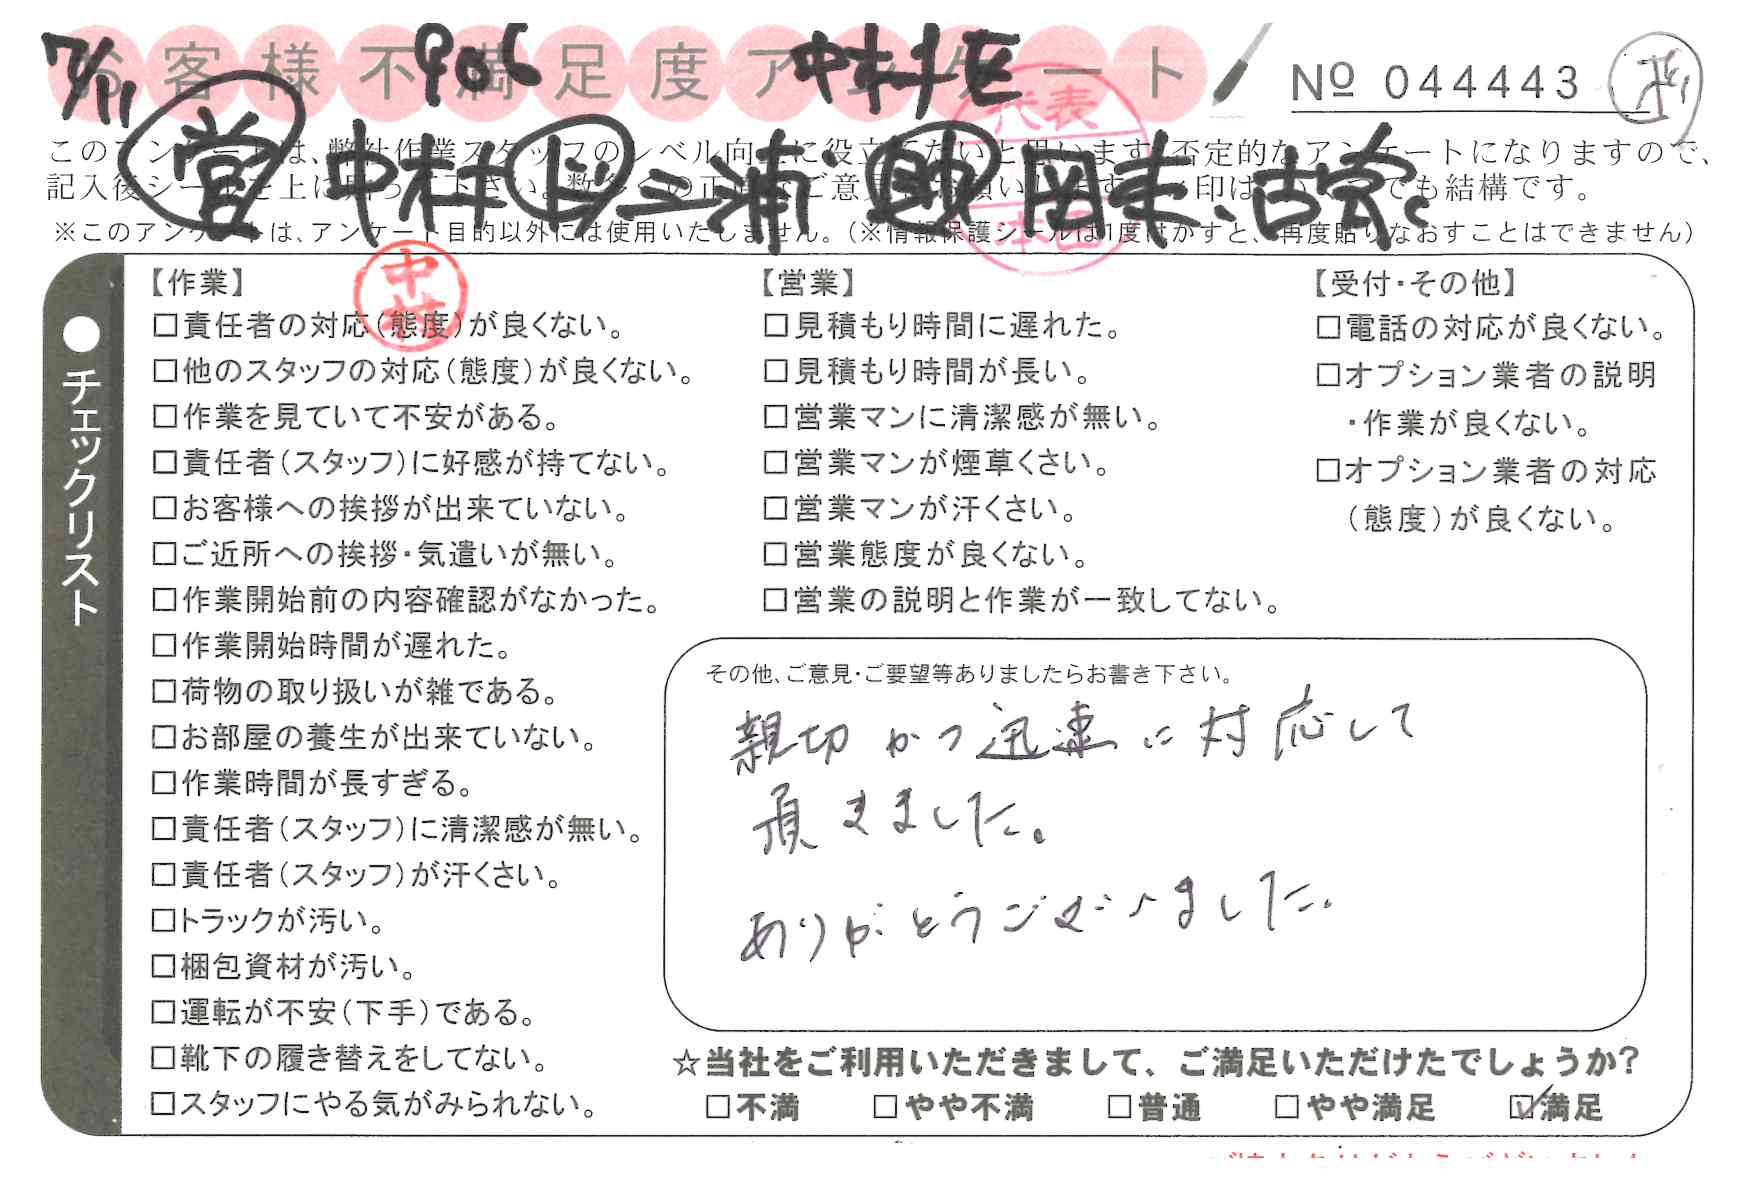 お客様不満足度アンケート
7/11 906 中村正
Nº 044443
営 中村 ド 三浦 助 岡末、古会
このアンケートは、弊社作業スタッフのレベル向上に役立てたいと思います。否定的なアンケートになりますので、
※このアンケートは、アンケート目的以外には使用いたしません。(※情報保護シールは1度はがすと、再度貼りなおすことはできません)
代表
本田
中村
●チェックリスト
【作業】
□責任者の対応(態度)が良くない。
□他のスタッフの対応(態度)が良くない。
□作業を見ていて不安がある。
□責任者(スタッフ)に好感が持てない。
□お客様への挨拶が出来ていない。
□ご近所への挨拶・気遣いが無い。
□作業開始前の内容確認がなかった。
□作業開始時間が遅れた。
□荷物の取り扱いが雑である。
□お部屋の養生が出来ていない。
□作業時間が長すぎる。
□責任者(スタッフ)に清潔感が無い。
□責任者(スタッフ)が汗くさい。
□トラックが汚い。
□梱包資材が汚い。
□運転が不安(下手)である。
□靴下の履き替えをしてない。
□スタッフにやる気がみられない。
【営業】
□見積もり時間に遅れた。
□見積もり時間が長い。
□営業マンに清潔感が無い。
□営業マンが煙草くさい。
□営業マンが汗くさい。
□営業態度が良くない。
□営業の説明と作業が一致してない。
【受付・その他】
□電話の対応が良くない。
□オプション業者の説明
・作業が良くない。
□オプション業者の対応
(態度)が良くない。
その他、ご意見・ご要望等ありましたらお書き下さい。
親切かつ迅速に対応して
頂きました。
ありがとうございました。
☆当社をご利用いただきまして、ご満足いただけたでしょうか?
□不満 □やや不満 □普通 □やや満足 ☑満足